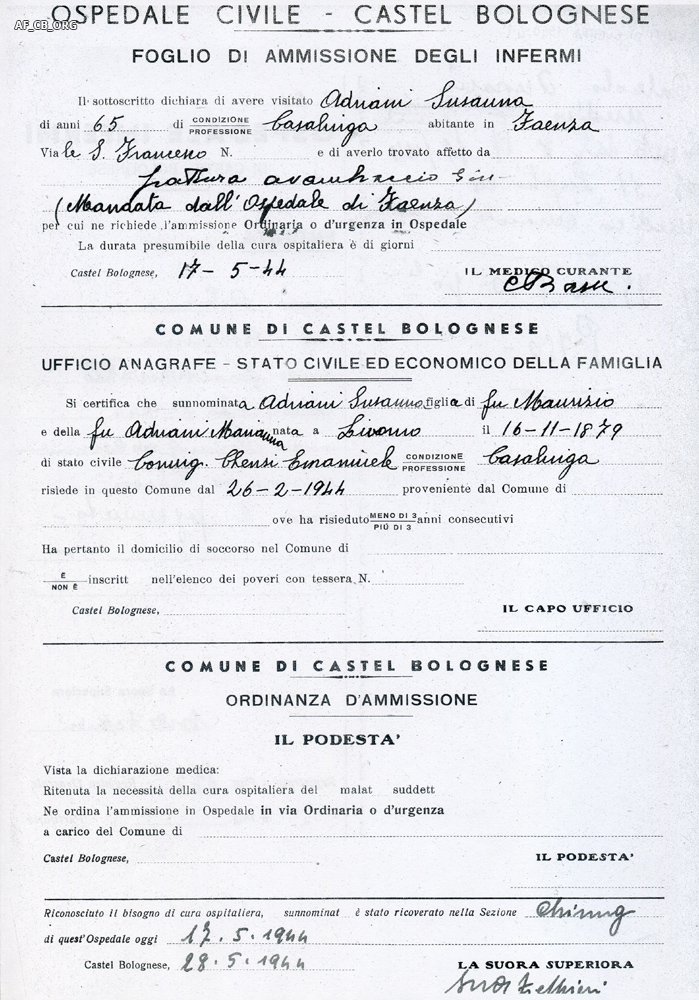 OSPEDALE CIVILE - CASTEL BOLOGNESE
AF_CB_ORG
FOGLIO DI AMMISSIONE DEGLI INFERMI
Il sottoscritto dichiara di avere visitato Adriani Susanna
di anni 65 di CONDIZIONE PROFESSIONE Casalinga abitante in Faenza
Viale S. Francesco N. e di averlo trovato affetto da
frattura avambraccio sin-
(Mandata dall'Ospedale di Faenza)
per cui ne richiede l'ammissione Ordinaria o d'urgenza in Ospedale
La durata presumibile della cura ospitaliera è di giorni
Castel Bolognese, 17-5-44 IL MEDICO CURANTE
COMUNE DI CASTEL BOLOGNESE
UFFICIO ANAGRAFE - STATO CIVILE ED ECONOMICO DELLA FAMIGLIA
Si certifica che sunnominata Adriani Susanna figlia di fu Maurizio
e della fu Adriani Marianna nata a Livorno il 16-11-1879
di stato civile Coniug. Emanuele CONDIZIONE PROFESSIONE Casalinga
risiede in questo Comune dal 26-2-1944 proveniente dal Comune di
ove ha risieduto MENO DI 3 PIÙ DI 3 anni consecutivi
Ha pertanto il domicilio di soccorso nel Comune di
È NON È inscritt nell'elenco dei poveri con tessera N.
Castel Bolognese, IL CAPO UFFICIO
COMUNE DI CASTEL BOLOGNESE
ORDINANZA D'AMMISSIONE
IL PODESTA'
Vista la dichiarazione medica:
Ritenuta la necessità della cura ospitaliera del malat suddett
Ne ordina l'ammissione in Ospedale in via Ordinaria o d'urgenza
a carico del Comune di
Castel Bolognese, IL PODESTA'
Riconosciuto il bisogno di cura ospitaliera, sunnominat è stato ricoverato nella Sezione Chirurg
di quest'Ospedale oggi 17.5.1944
Castel Bolognese, 28.5.1944 LA SUORA SUPERIORA